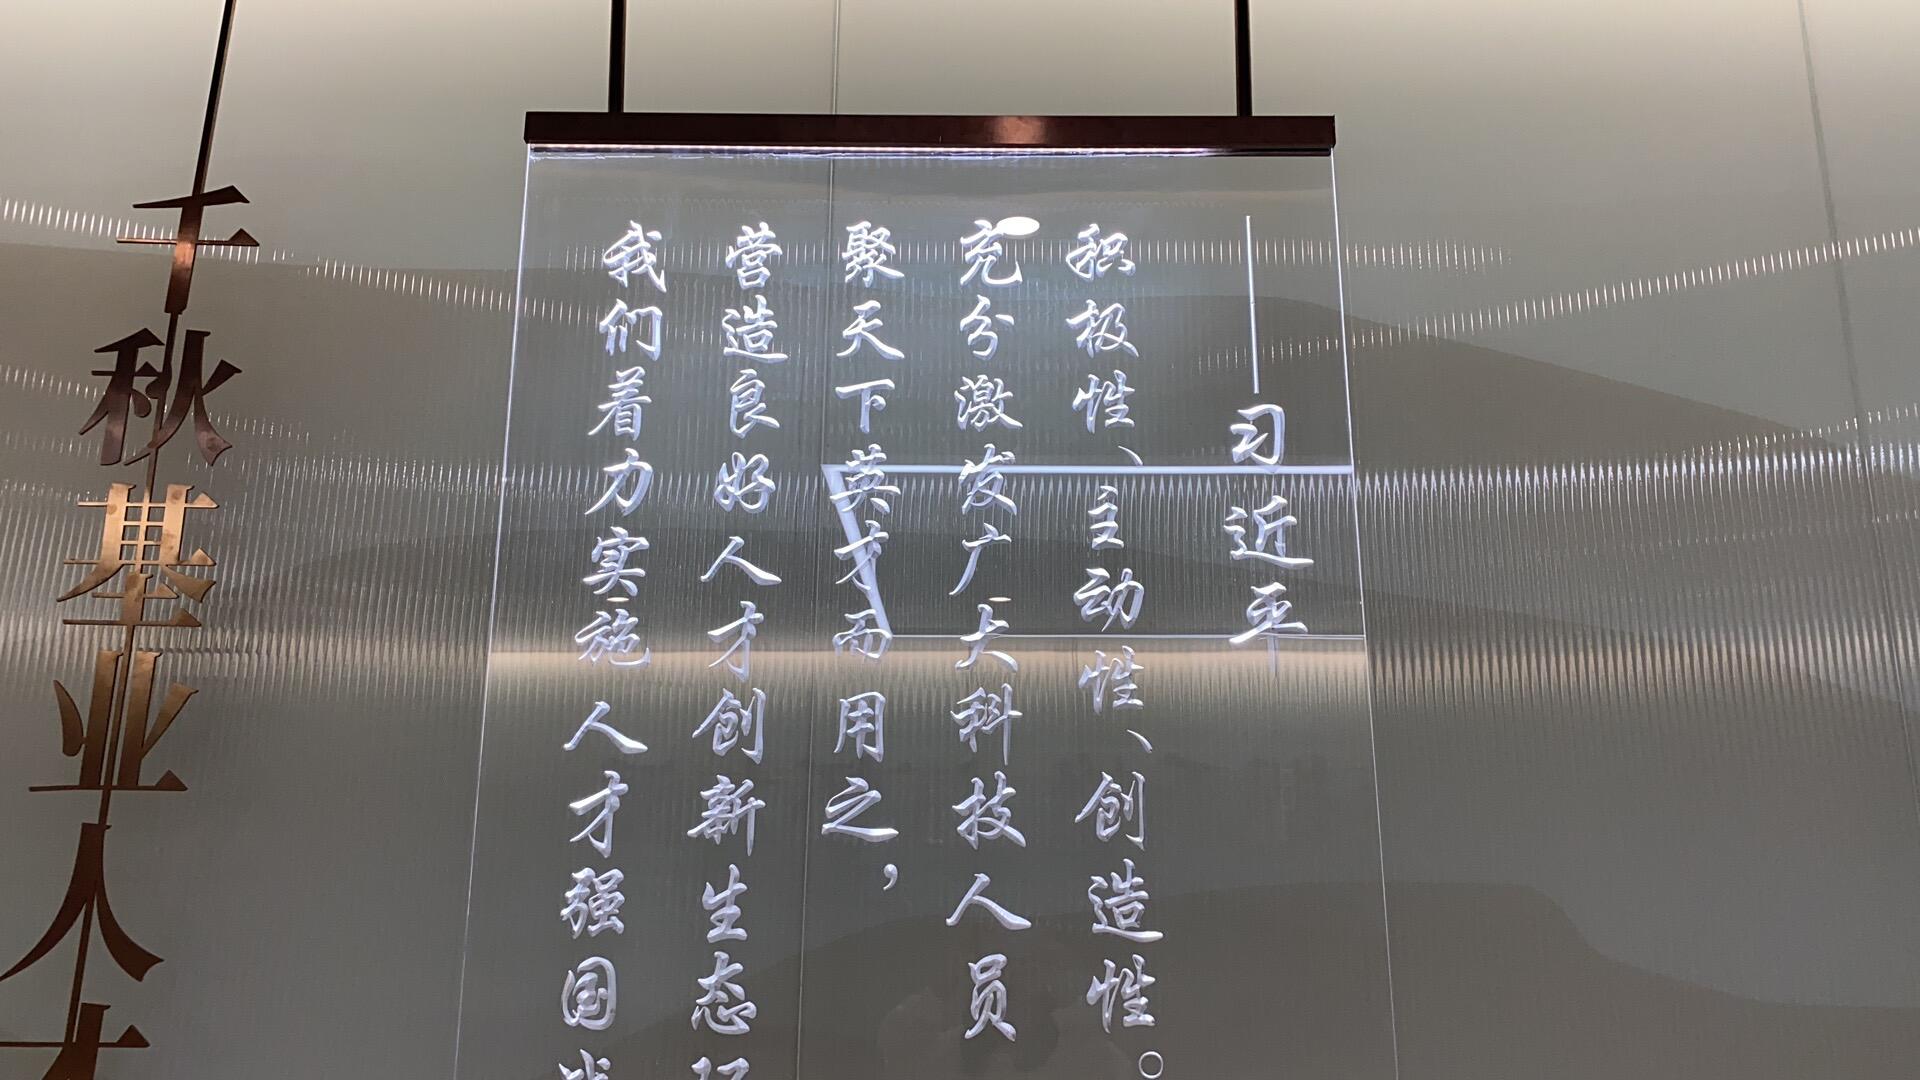 千秋基业人才
我们着力实施人才强国战
营造良好人才创新生态环
聚天下英才而用之，
充分激发广大科技人员
积极性、主动性、创造性。
——习近平